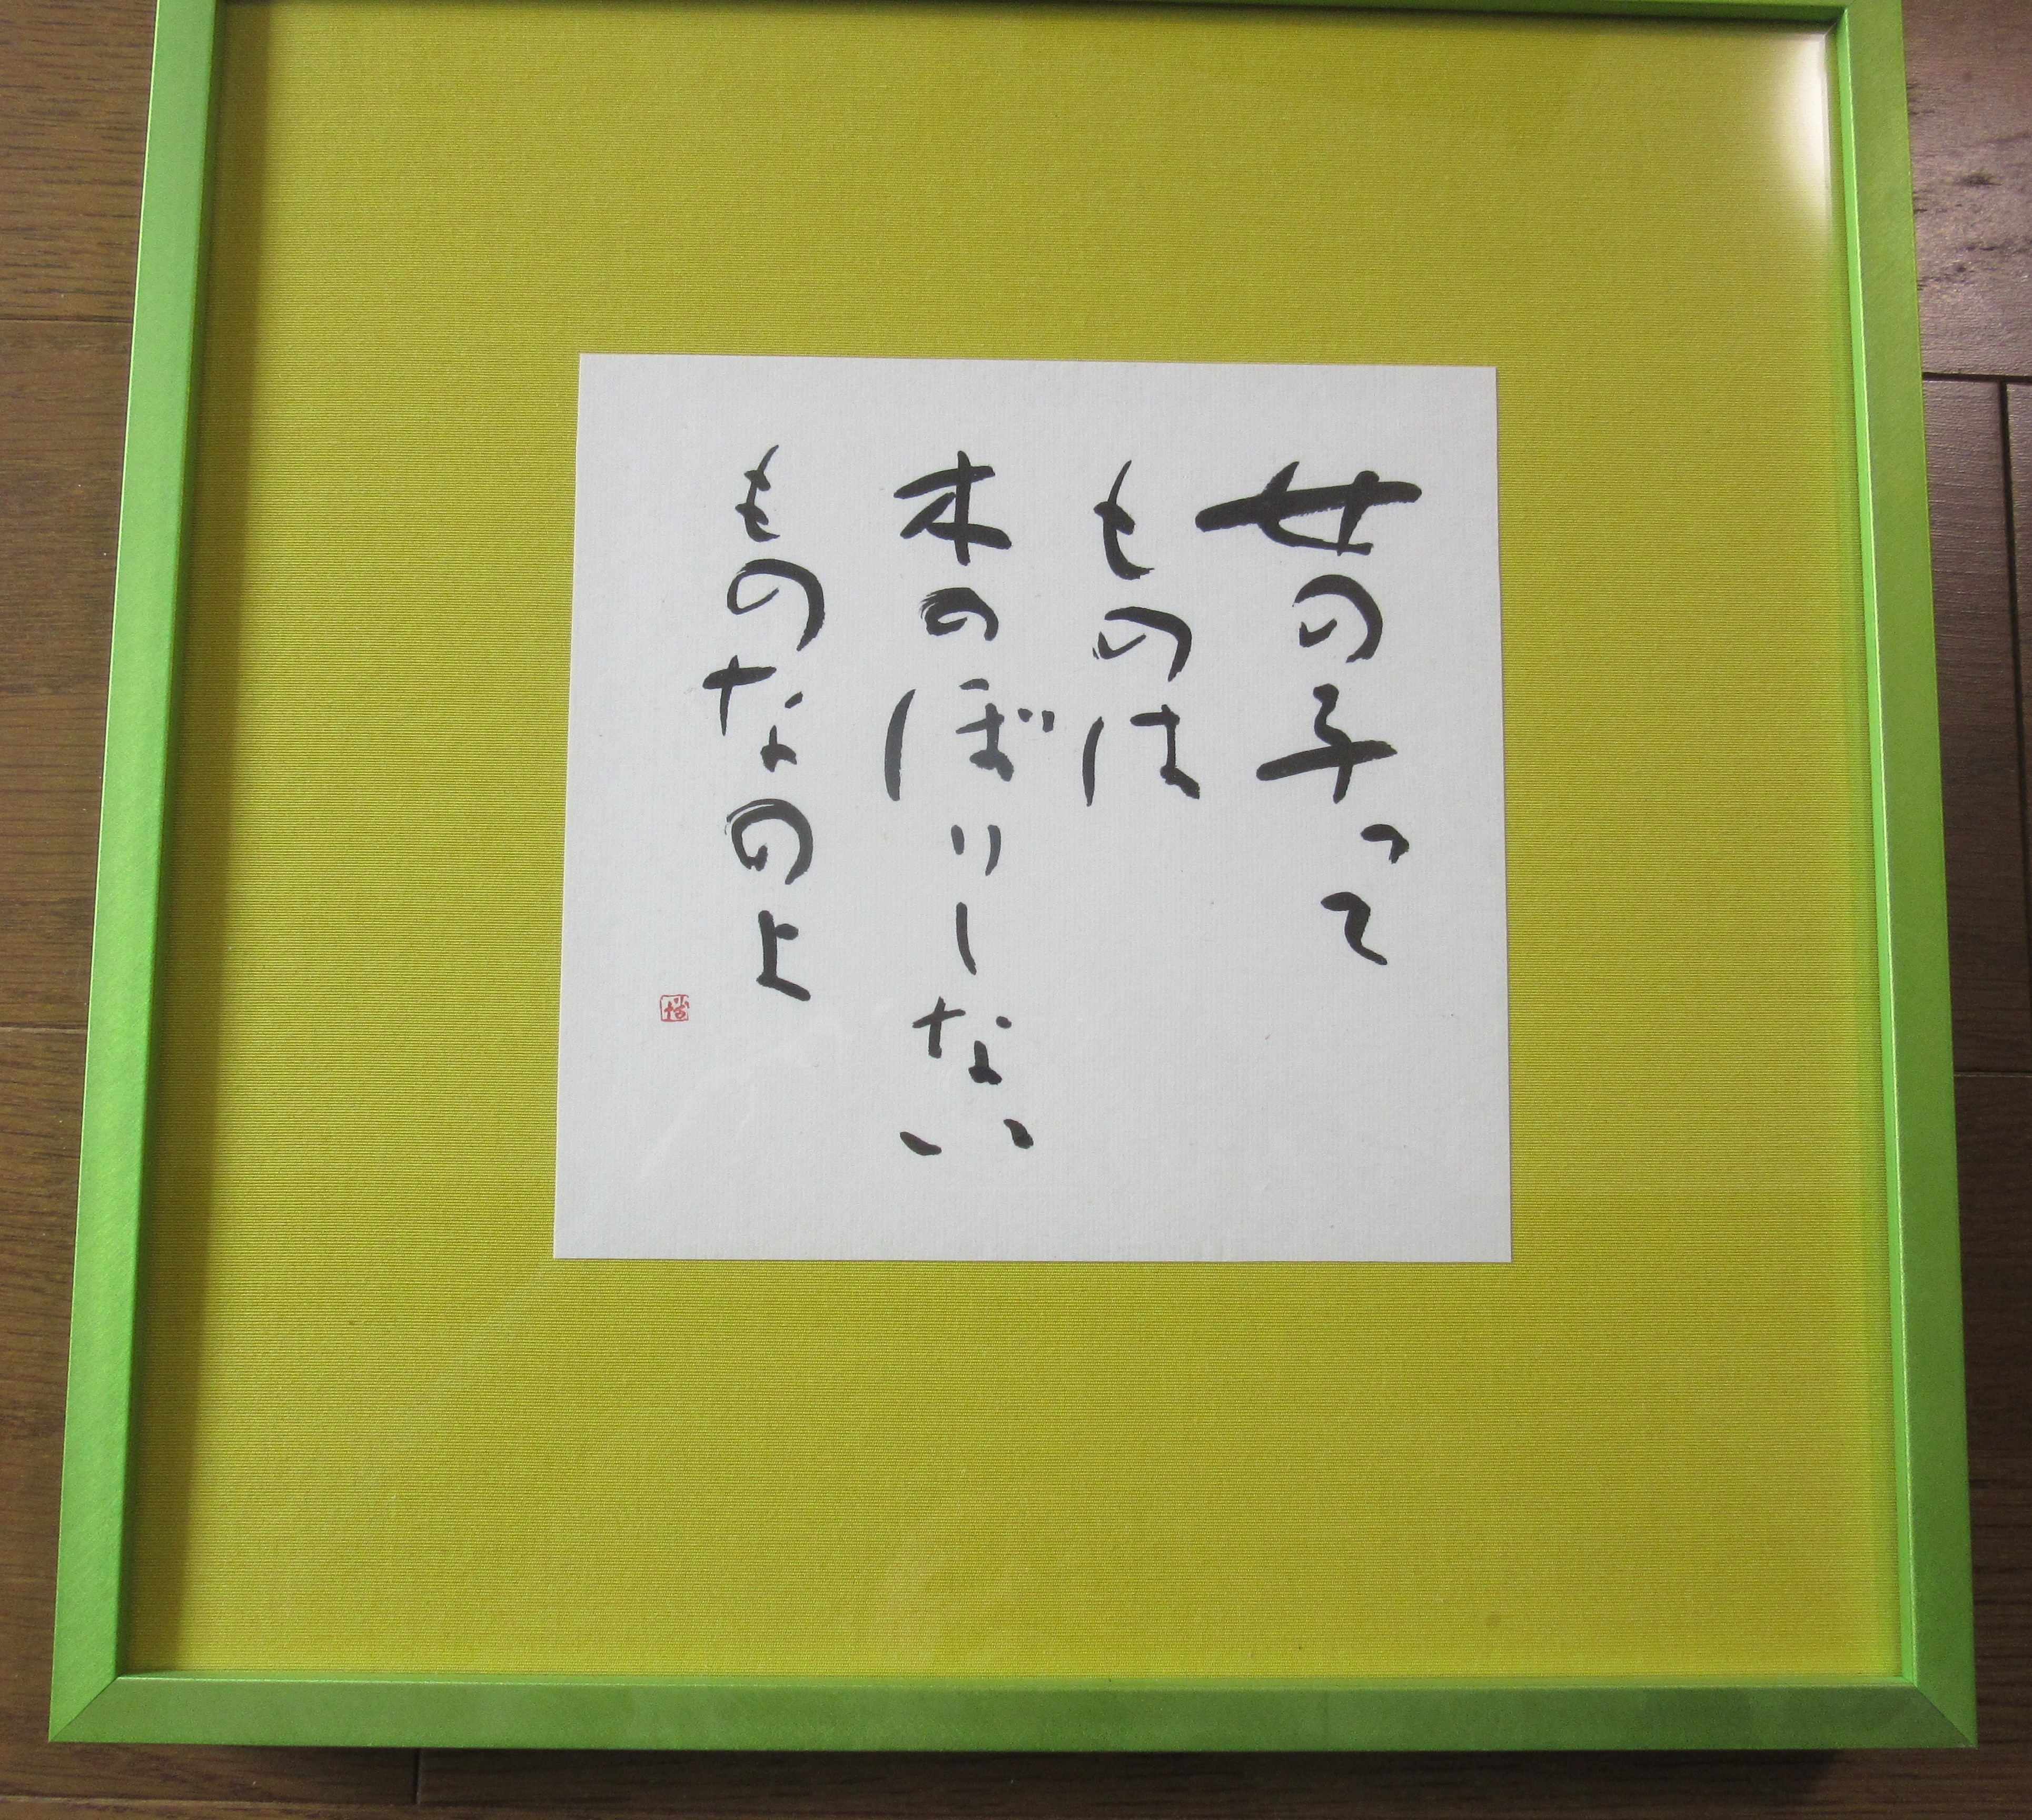 女の子って
ものは
木のぼりしない
ものなのよ